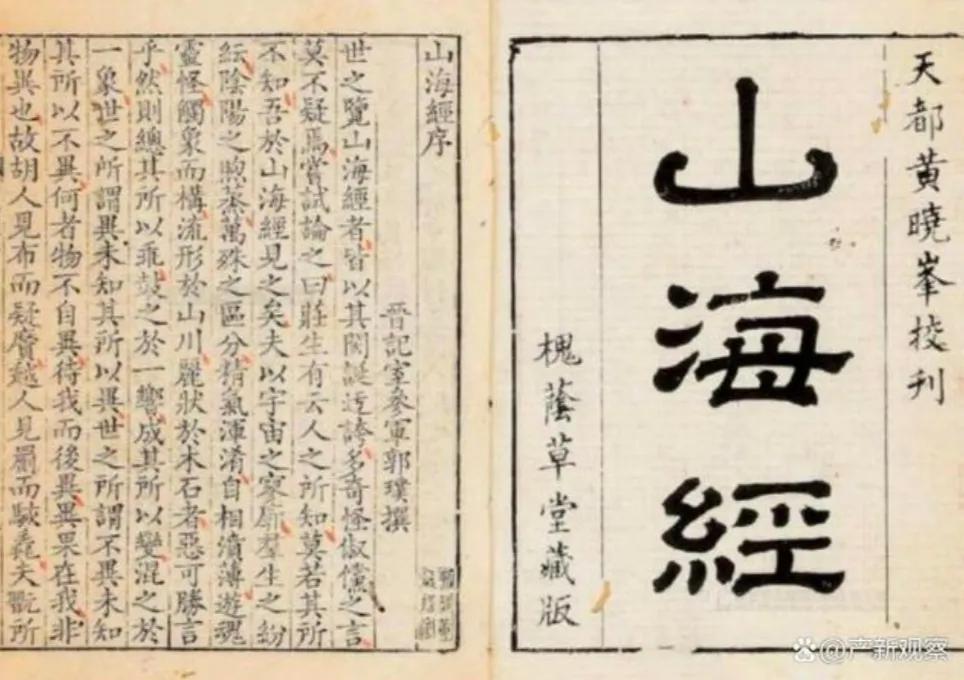 天都黃曉峯挍刊
山海經
槐蔭草堂藏版
山海經序
晉記室參軍郭璞撰
世之覽山海經者皆以其閎誕迂誇多奇怪俶儻之言
莫不疑焉嘗試論之曰莊生有云人之所知莫若其所
不知吾於山海經見之矣夫以宇宙之寥廓羣生之紛
紜陰陽之煦蒸萬殊之區分精氣渾淆自相濆薄遊魂
靈怪觸象而構流形於山川麗狀於木石者惡可勝言
乎然則總其所以乖鼓之於一響成其所以變混之於
一象世之所謂異未知其所以異世之所謂不異未知
其所以不異何者物不自異待我而後異異果在我非
物異也故胡人見布而疑黂越人見罽而駭毳夫翫所
@产新观察